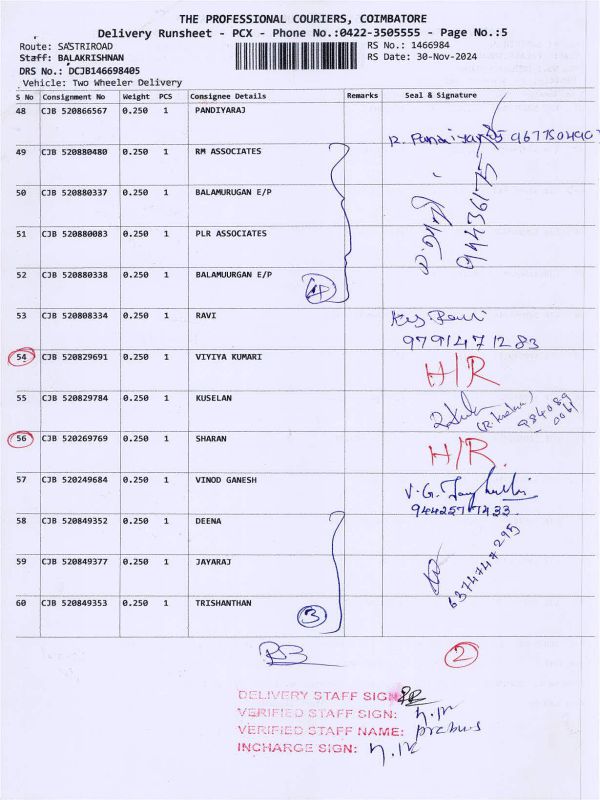 THE PROFESSIONAL COURIERS, COIMBATORE
Delivery Runsheet - PCX - Phone No.:0422-3505555 - Page No.:5
Route: SASTRIROAD RS No.: 1466984
Staff: BALAKRISHNAN RS Date: 30-Nov-2024
DRS No.: DCJB146698405
Vehicle: Two Wheeler Delivery
S No Consignment No Weight PCS Consignee Details Remarks Seal & Signature
48 CJB 520866567 0.250 1 PANDIYARAJ
R. Pandiyaraj
49 CJB 520880480 0.250 1 RM ASSOCIATES
50 CJB 520880337 0.250 1 BALAMURUGAN E/P
51 CJB 520880083 0.250 1 PLR ASSOCIATES
52 CJB 520880338 0.250 1 BALAMUURGAN E/P
4
53 CJB 520808334 0.250 1 RAVI
9791471283
54 CJB 520829691 0.250 1 VIYIYA KUMARI H/R
55 CJB 520829784 0.250 1 KUSELAN
(R. Kuselan)
56 CJB 520269769 0.250 1 SHARAN H/R.
57 CJB 520249684 0.250 1 VINOD GANESH V.G.
58 CJB 520849352 0.250 1 DEENA
59 CJB 520849377 0.250 1 JAYARAJ
6374747295
60 CJB 520849353 0.250 1 TRISHANTHAN
3
2
DELIVERY STAFF SIGN
VERIFIED STAFF SIGN:
VERIFIED STAFF NAME:
INCHARGE SIGN: